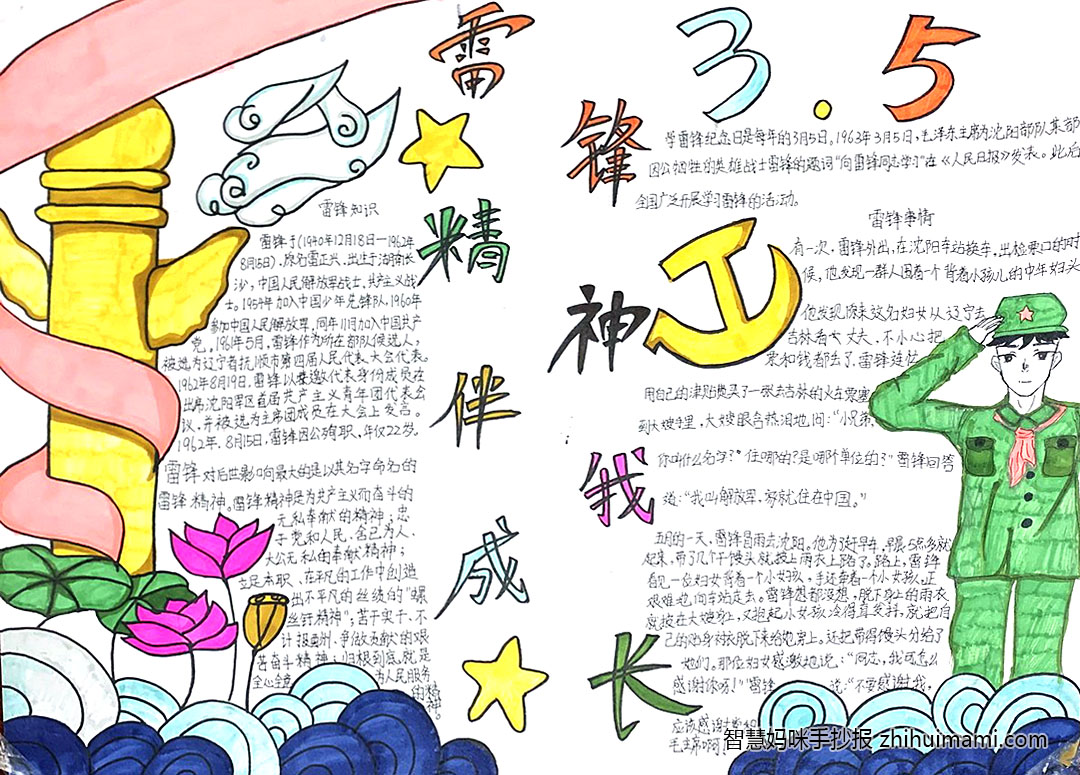 雷锋精神伴我成长
3.5
雷锋知识
雷锋于(1940年12月18日—1962年
8月15日),原名雷正兴,出生于湖南长
沙,中国人民解放军战士,共产主义战
士。1954年加入中国少年先锋队,1960年
参加中国人民解放军,同年11月加入中国共产
党。1961年5月,雷锋作为所在部队候选人,
被选为辽宁省抚顺市第四届人民代表大会代表。
1962年8月19日,雷锋以特邀代表身份成员在
出席沈阳军区首届共产主义青年团代表会
议,并被选为主席团成员在大会上发言。
1962年.8月15日,雷锋因公殉职,年仅22岁。
雷锋对后世影响最大的是以其名字命名的
雷锋精神。雷锋精神是为共产主义而奋斗的
无私奉献的精神;忠
于党和人民、舍己为人、
大公无私的奉献精神;
立足本职、在平凡的工作中创造
出不平凡的业绩的"螺
丝钉精神";苦干实干、不
计报酬、争做贡献的艰
苦奋斗精神;归根到底,就是
全心全意为人民服务
的精神。
学雷锋纪念日是每年的3月5日。1963年3月5日,毛泽东主席为沈阳部队某部
因公牺牲的英雄战士雷锋的题词"向雷锋同志学习"在《人民日报》发表。此后
全国广泛开展学习雷锋的活动。
雷锋事情
有一次,雷锋外出,在沈阳车站换车,出检票口的时
候,他发现一群人围着一个背着小孩儿的中年妇头
他发现原来这名妇女从辽宁去
吉林看丈夫,不小心把
票和钱都丢了,雷锋连忙
用自己的津贴费买了一张去吉林的火车票塞
到大嫂手里,大嫂眼含热泪地问:"小兄弟,
你叫什么名字?"住哪的?是哪个单位的?"雷锋回答
道:"我叫解放军,家就住在中国。"
五月的一天,雷锋冒雨去沈阳。他为了赶早车,早晨5点多就
起来,带了几个干馒头就披上雨衣上路了。路上,雷锋
看见一位妇女背着一个小女孩,手还牵着一个小女孩,正
艰难地向车站走去。雷锋想都没想,脱下身上的雨衣
就披在大嫂身上,又抱起小女孩冷得直发抖,就把自
己的贴身衣服脱下来给她穿上。还把带得馒头分给了
她们。那位妇女感激地说:"同志,我可怎么
感谢你呀!"雷锋说:"不要感谢我,
应该感谢党和
毛主席啊
智慧妈咪手抄报 zhihuimami.com